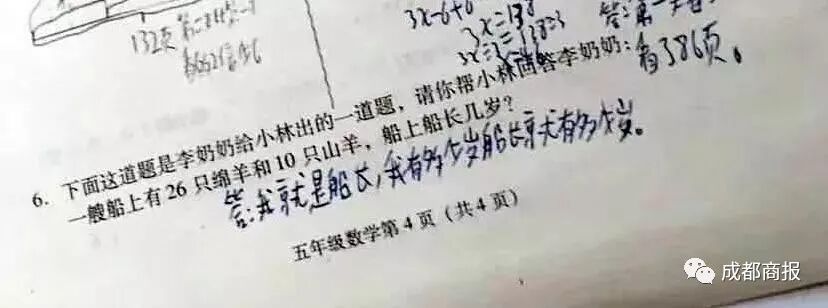 132页
3x-6+6
3x=138
有386页。
6. 下面这道题是李奶奶给小林出的一道题，请你帮小林回答李奶奶：
一艘船上有26只绵羊和10只山羊，船上船长几岁？
答：我就是船长，我有多少岁船长就有多少岁。
五年级数学第4页（共4页）
成都商报